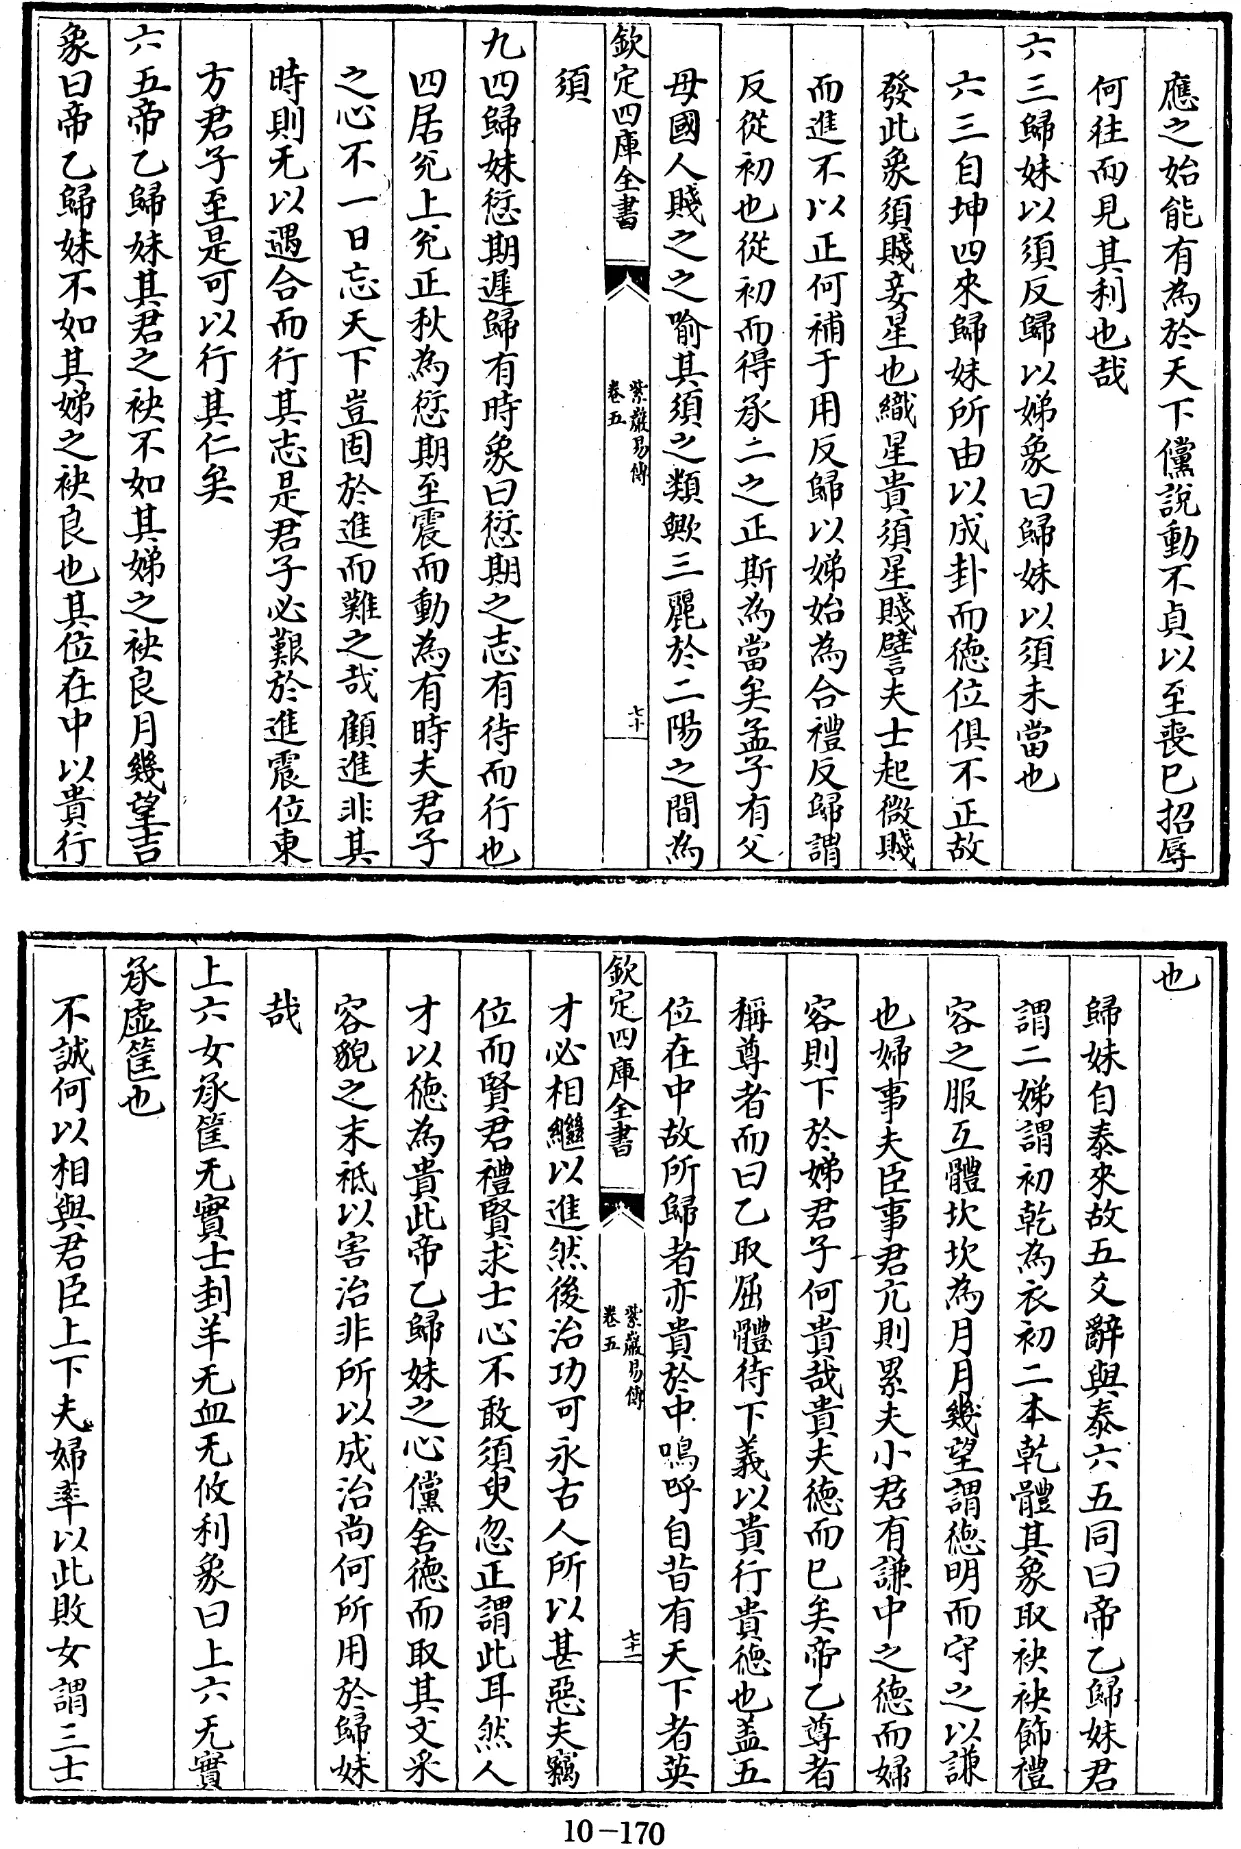 應之始能有為於天下儻說動不貞以至喪已招辱
何往而見其利也哉
六三歸妹以須反歸以娣象曰歸妹以須未當也
六三自坤四來歸妹所由以成卦而德位俱不正故
發此象須賤妾星也織星貴須星賤譬夫士起微賤
而進不以正何補于用反歸以娣始為合禮反歸謂
反從初也從初而得承二之正斯為當矣孟子有父
母國人賤之之喻其須之類歟三麗於二陽之間為
欽定四庫全書
紫巖易傳
卷五
七十
須
九四歸妹愆期遲歸有時象曰愆期之志有待而行也
四居兊上兊正秋為愆期至震而動為有時夫君子
之心不一日忘天下豈固於進而難之哉顧進非其
時則无以遇合而行其志是君子必艱於進震位東
方君子至是可以行其仁矣
六五帝乙歸妹其君之袂不如其娣之袂良月幾望吉
象曰帝乙歸妹不如其娣之袂良也其位在中以貴行
也
歸妹自泰來故五爻辭與泰六五同曰帝乙歸妹君
謂二娣謂初乾為衣初二本乾體其象取袂袂飾禮
容之服互體坎坎為月月幾望謂德明而守之以謙
也婦事夫臣事君亢則累夫小君有謙中之德而婦
容則下於娣君子何貴哉貴夫德而已矣帝乙尊者
稱尊者而曰乙取屈體待下義以貴行貴德也盖五
位在中故所歸者亦貴於中嗚呼自昔有天下者英
欽定四庫全書
紫巖易傳
卷五
七十一
才必相繼以進然後治功可永古人所以甚惡夫竊
位而賢君禮賢求士心不敢須臾忽正謂此耳然人
才以德為貴此帝乙歸妹之心儻舍德而取其文采
容貌之末祗以害治非所以成治尚何所用於歸妹
哉
上六女承筐无實士刲羊无血无攸利象曰上六无實
承虛筐也
不誠何以相與君臣上下夫婦率以此敗女謂三士
10-170